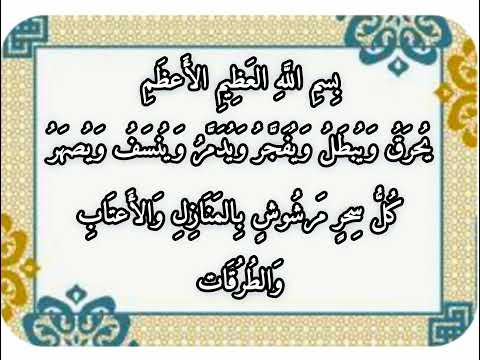 بِسِمِ اللَّهِ العَظِيمِ الأَعظَمِ
يُحرَقُ وَيُبطَلُ وَيُفَجَّرُ وَيُدَمَّرُ وَيُنسَفُ وَيُصهَرُ
كُلُّ سِحرٍ مَرشُوشٍ بِالمَنَازِلِ وَالأَعتَابِ
وَالطُرُقَات